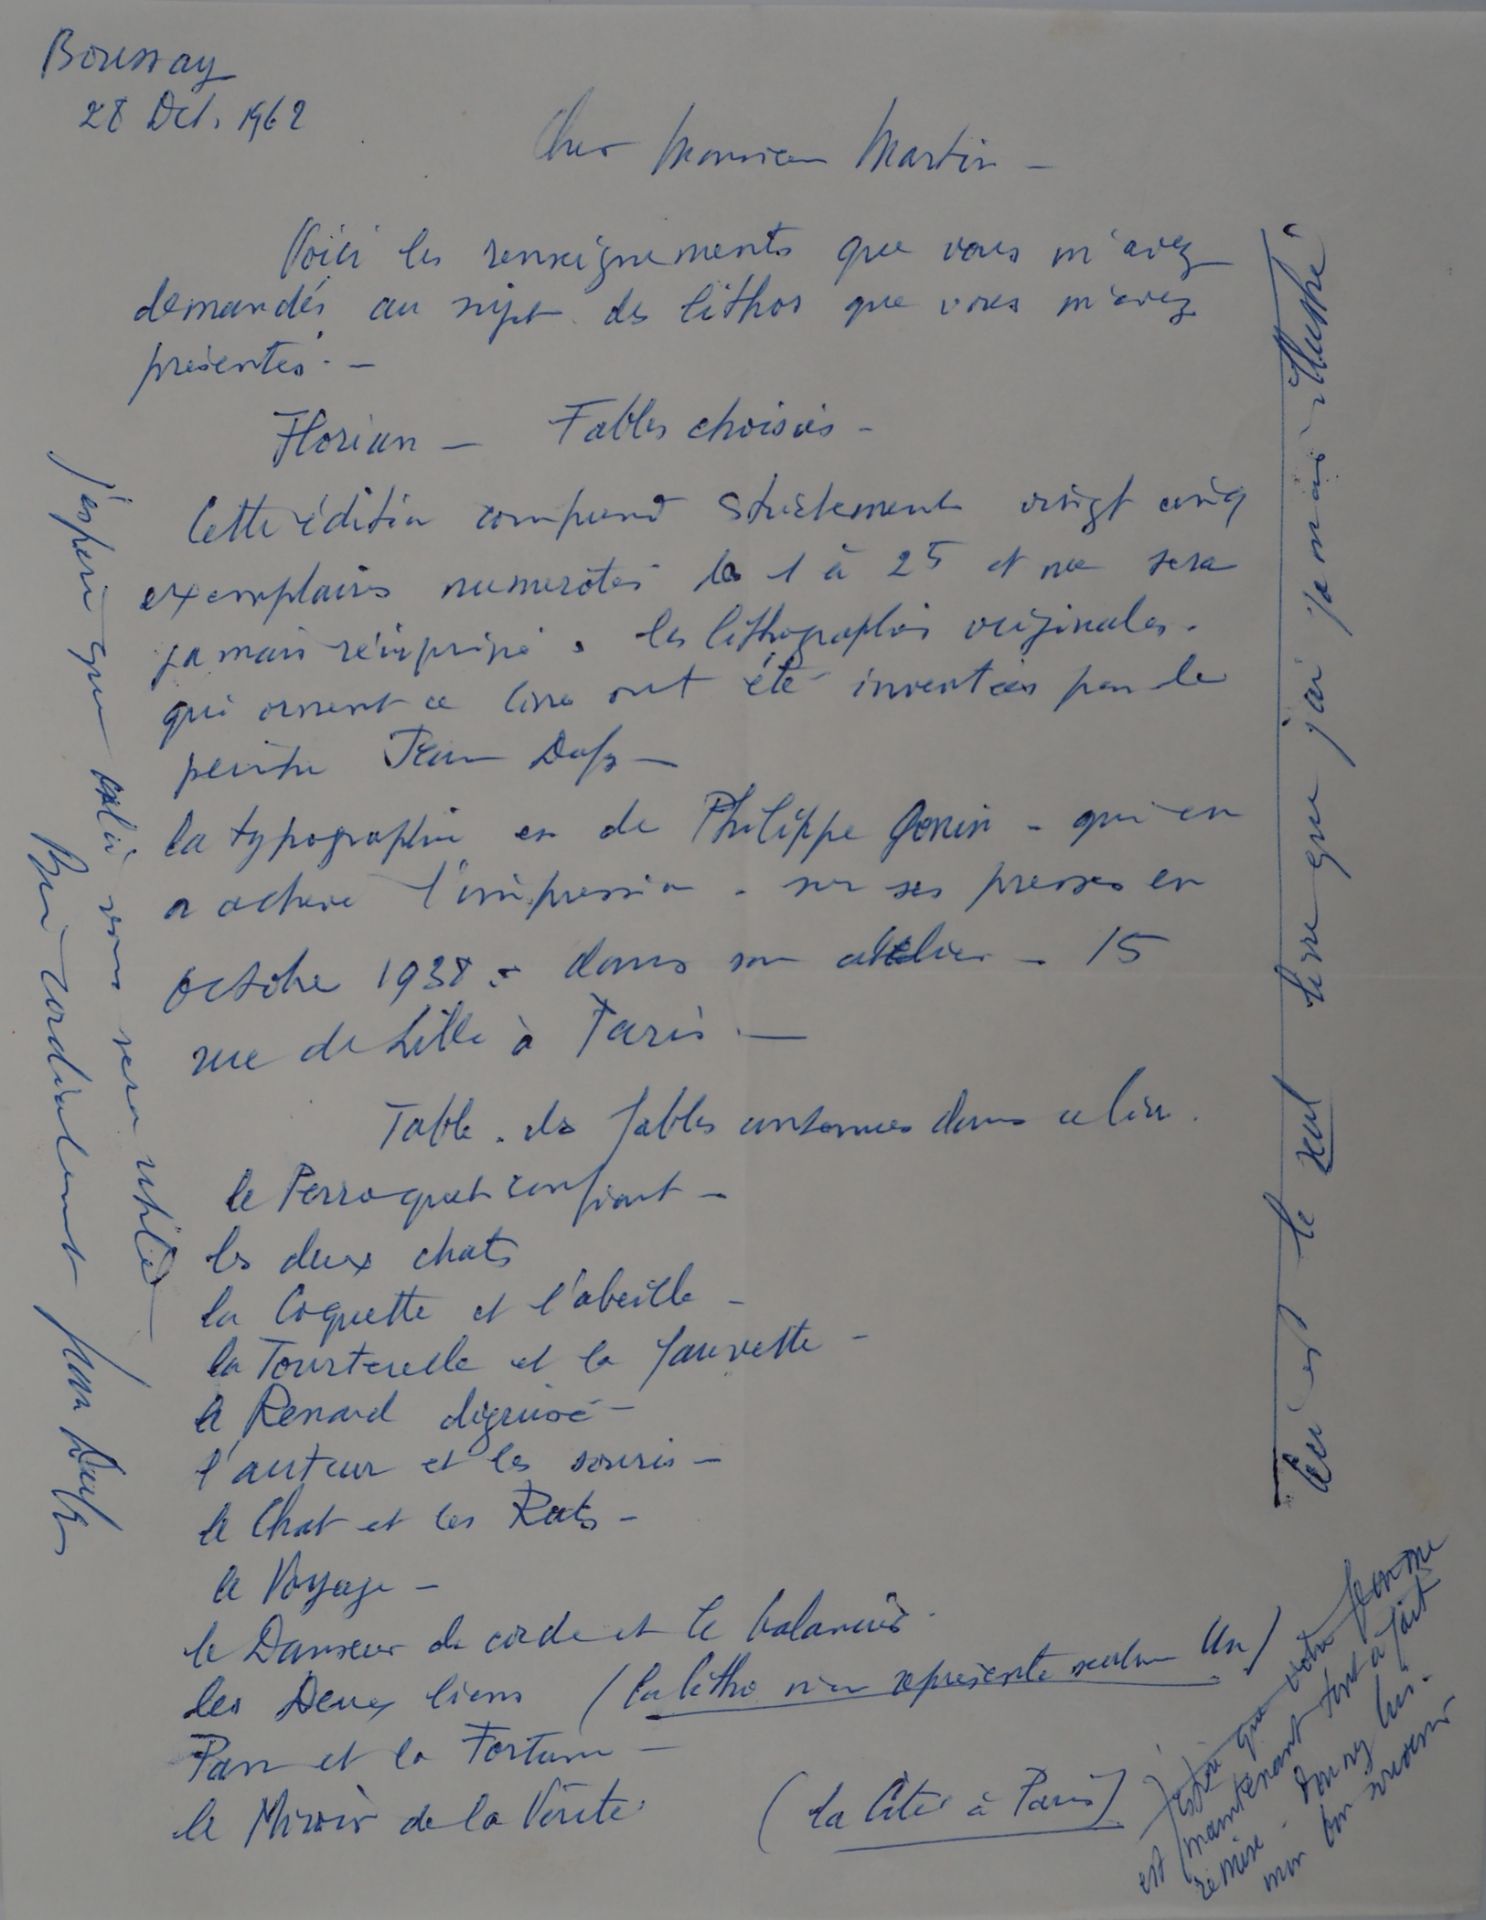 Boussay
28 Oct. 1962
Cher Monsieur Martin -
Voici les renseignements que vous m'avez
demandés au sujet des lithos que vous m'avez
présentés. -
Florian - Fables choisies -
Cette édition comprend strictement vingt cinq
exemplaires numérotés de 1 à 25 et ne sera
jamais réimprimé. les lithographies originales.
qui ornent ce livre ont été inventées par le
peintre Jean Dufy -
la typographie est de Philippe Gonin - qui en
a achevé l'impression - sur ses presses en
octobre 1938 - dans son atelier - 15
rue de Lille à Paris. -
Table des fables contenues dans ce livre.
le Perroquet confiant -
les deux chats
la Coquette et l'abeille -
la Tourterelle et la fauvette -
le Renard déguisé -
l'auteur et les souris -
le Chat et les Rats -
le Voyage -
le Danseur de corde et le balancier.
les Deux lions (la litho n'en représente seulem Un)
Pan et la Fortune -
le Miroir de la Vérité (la Cité à Paris)
J'espère que votre femme
est maintenant tout à fait
remise. Donnez lui.
mon bon souvenir
Ceci est le seul livre que j'ai jamais illustré
j'espère que celui vous sera utile -
Bien cordialement Jean Dufy